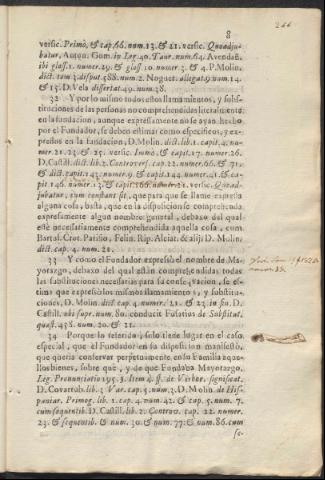 8
versic. Primò, & cap. 66. num. 13. & 21. versic. Quod adju-
batur, Anton. Gom. in Leg. 40. Taur. num. 64. Avendañ.
ibi gloss. 1. numer. 29. & gloss. 10. numer. 3. & 4. P. Molin.
dict. tom. 3. disput. 588. num. 2. Noguer. allegat. 9. num. 14.
& 15. D. Vela dissertat. 49. num. 38.
32 Y por lo mismo todos estos llamamientos, y subs-
tituciones de las personas no comprehendidas literalmente
en la fundacion, aunque expresamente no se ayan hecho
por el Fundador, se deben estimar como especificos, y ex-
pressos en la fundacion, D. Molin. dict. lib. 1. capit. 4. nu-
mer. 21. 23. & 25. versic. Immò, & capit. 17. numer. 26.
D. Castill. dict. lib. 2. Controvers. cap. 22. numer. 66. & 71.
& dict. capit. 143. numer. 9. & capit. 144. numer. 41. & ca-
pit. 146. numer. 13. & capit. 166. numer. 21. versic. Quod ad-
jubatur, cum constant sit, que para que se llame expressa
alguna cosa, basta, que en la disposicion se comprehenda
expresamente algun nombre general, debaxo del qual
esté necessariamente comprehendida aquella cosa, cum
Bartol. Crot. Patiño, Felin. Rip. Alciat. & alij D. Molin.
dict. cap. 4. num. 21.
33 Y como el Fundador expressó el nombre de Ma-
yorazgo, debaxo del qual están comprehendidas todas
las substituciones necessarias para su conservacion, se es-
timan que expressó los mismos llamamientos, y substitu-
ciones, D. Molin. dict. cap. 4. numer. 21. & 23. in fin. D.
Castill. ubi supr. num. 80. conducit Fusarius de Substitut.
quæst. 458. num. 20. & 21.
34 Porque lo referido, solo tiene lugar en el caso
especial, que el Fundador en su disposicion manifestó,
que queria conservar perpetuamente en su Familia aque-
llos bienes, sobre que, y de que Fundaba Mayorazgo,
Leg. Pronunciatio 195. §. Item 4. ff. de Verbor. significat.
D. Covarrub. lib. 3. Var. cap. 5. num. 3. D. Molin. de His-
paniar. Primog. lib. 1. cap. 4. num. 42. & cap. 5. num. 7.
cum sequentib. D. Castill. lib. 2. Controv. cap. 22. numer.
23. & sequentib. & num. 30. & num. 77. & num. 86. cum
se-